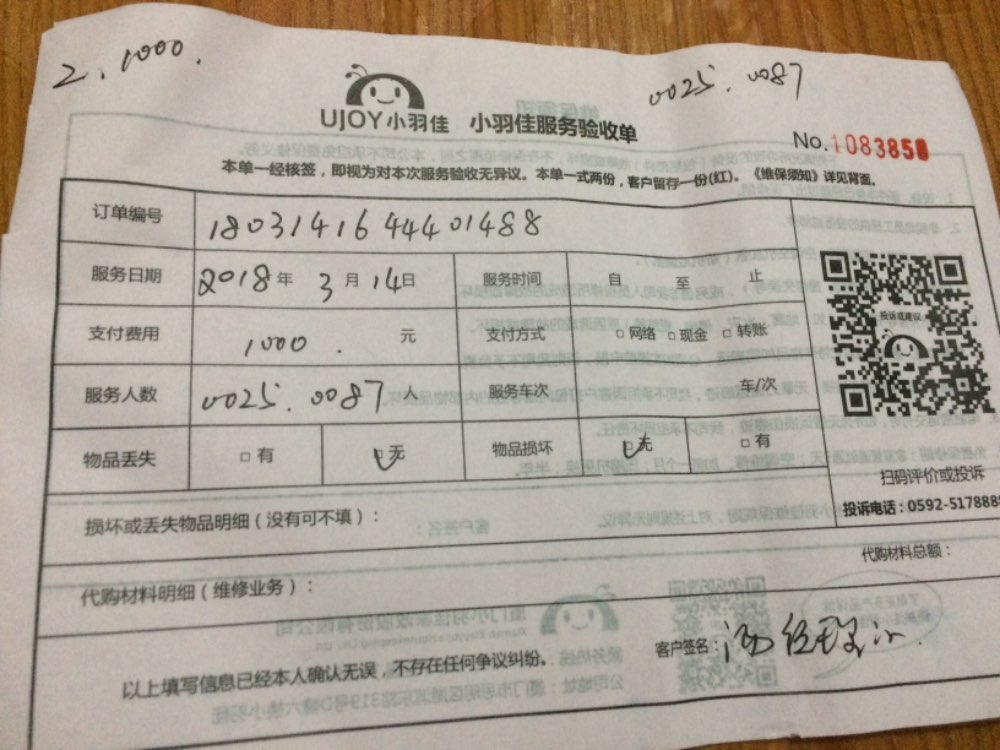 2. 1000.
0025. 0087
UJOY小羽佳 小羽佳服务验收单
No.1083858
本单一经核签，即视为对本次服务验收无异议。本单一式两份，客户留存一份(红)。《维保须知》详见背面。
订单编号 180314164440 1488
服务日期 2018年 3月 14日 服务时间 自 至 止
支付费用 1000. 元 支付方式 □网络 □现金 □转账
投诉或建议
服务人数 0025. 0087人 服务车次 车/次
物品丢失 □有 □无 物品损坏 □无 □有
扫码评价或投诉
损坏或丢失物品明细（没有可不填）：
投诉电话：0592-5178888
代购材料明细（维修业务）：
代购材料总额：
以上填写信息已经本人确认无误，不存在任何争议纠纷。
客户签名：